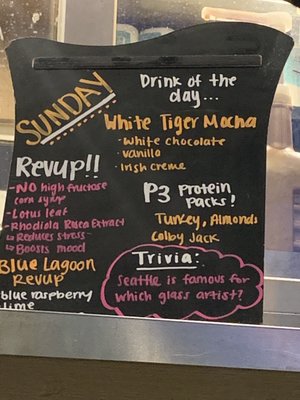 SUNDAY
Drink of the
day...
White Tiger Mocha
· White chocolate
· vanilla
· Irish creme
Revup!!
- NO high fructose
corn syrup
- Lotus leaf
- Rhodiola Rosea Extract
↳ Reduces stress
↳ Boosts mood
Blue Lagoon
REVUP
blue raspberry
lime
P3 Protein
packs!
Turkey, Almonds
Colby Jack
Trivia:
Seattle is famous for
which glass artist?